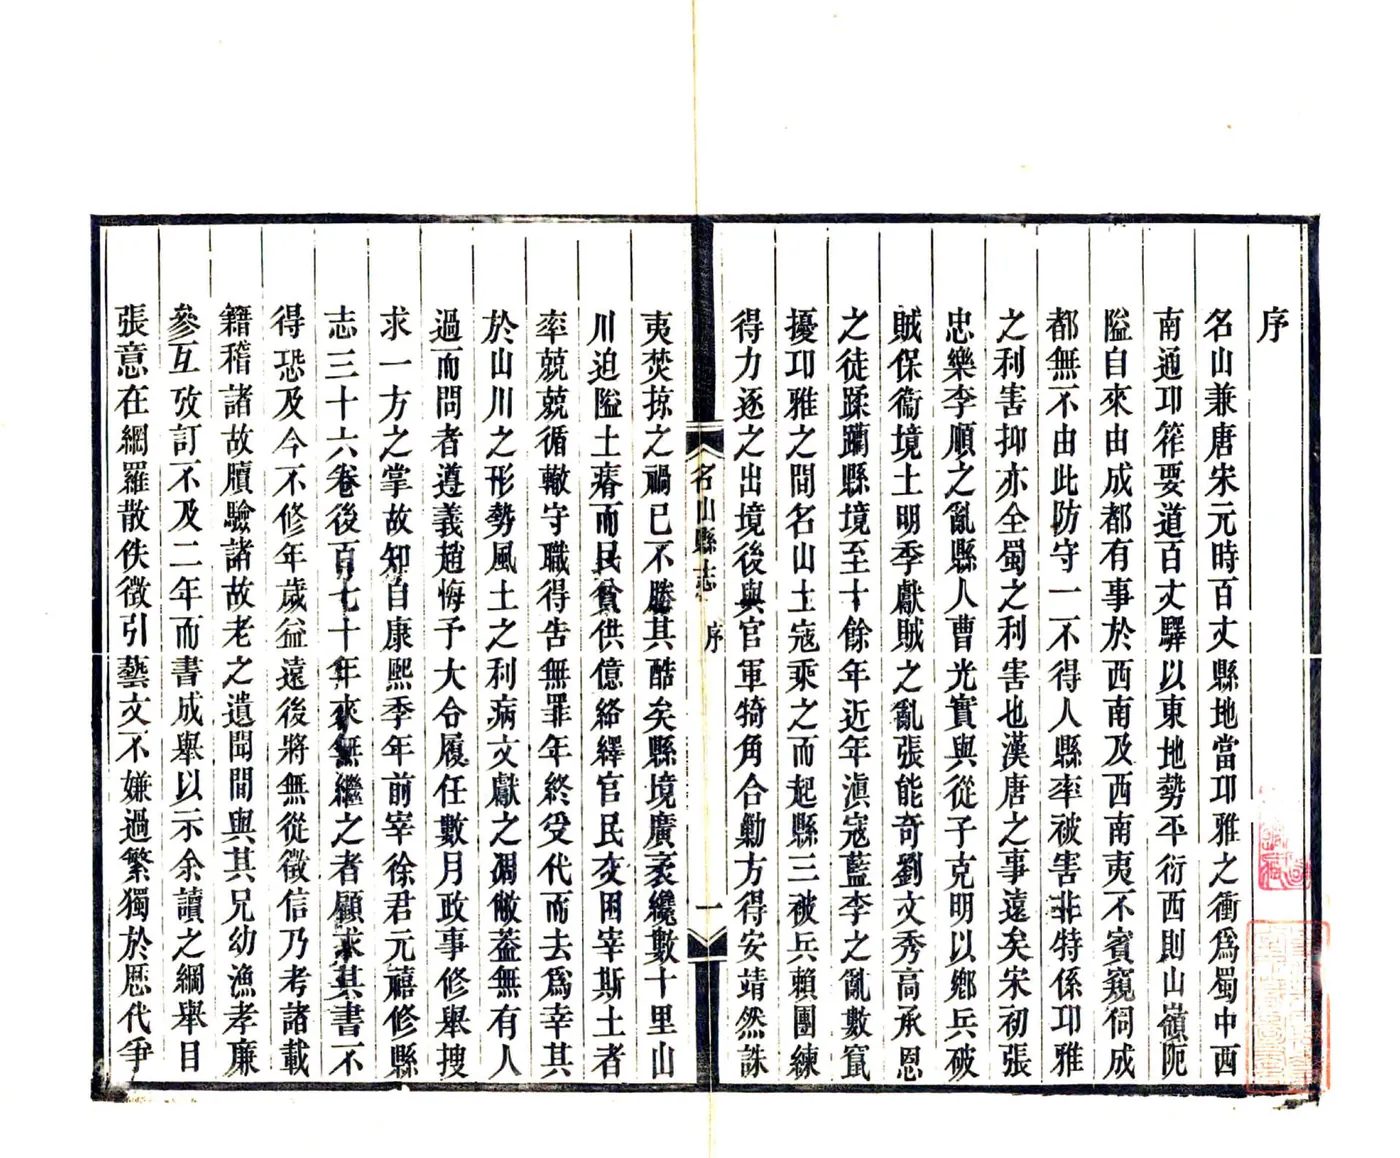 序
名山兼唐宋元時百丈縣地當邛雅之衝爲蜀中西
南通邛筰要道百丈驛以東地勢平衍西則山嶺阨
隘自來由成都有事於西南及西南夷不賓窺伺成
都無不由此防守一不得人縣率被害非特係邛雅
之利害抑亦全蜀之利害也漢唐之事遠矣宋初張
忠樂李順之亂縣人曹光實與從子克明以鄉兵破
賊保衞境土明季獻賊之亂張能奇劉文秀高承恩
之徒蹂躪縣境至十餘年近年滇寇藍李之亂數竄
擾邛雅之間名山土寇乘之而起縣三被兵賴團練
得力逐之出境後與官軍犄角合勦方得安靖然誅
名山縣志 序 一
夷焚掠之禍已不勝其酷矣縣境廣袤纔數十里山
川迫隘土瘠而民貧供億絡繹官民交困宰斯土者
率兢兢循轍守職得告無罪年終受代而去爲幸其
於山川之形勢風土之利病文獻之凋敝葢無有人
過而問者遵義趙悔予大令履任數月政事修舉搜
求一方之掌故知自康熙季年前宰徐君元禧修縣
志三十六卷後百七十年來無繼之者顧求其書不
得恐及今不修年歲益遠後將無從徵信乃考諸載
籍稽諸故牘驗諸故老之遺聞間與其兄幼漁孝廉
參互攷訂不及二年而書成舉以示余讀之綱舉目
張意在網羅散佚徵引藝文不嫌過繁獨於歷代爭